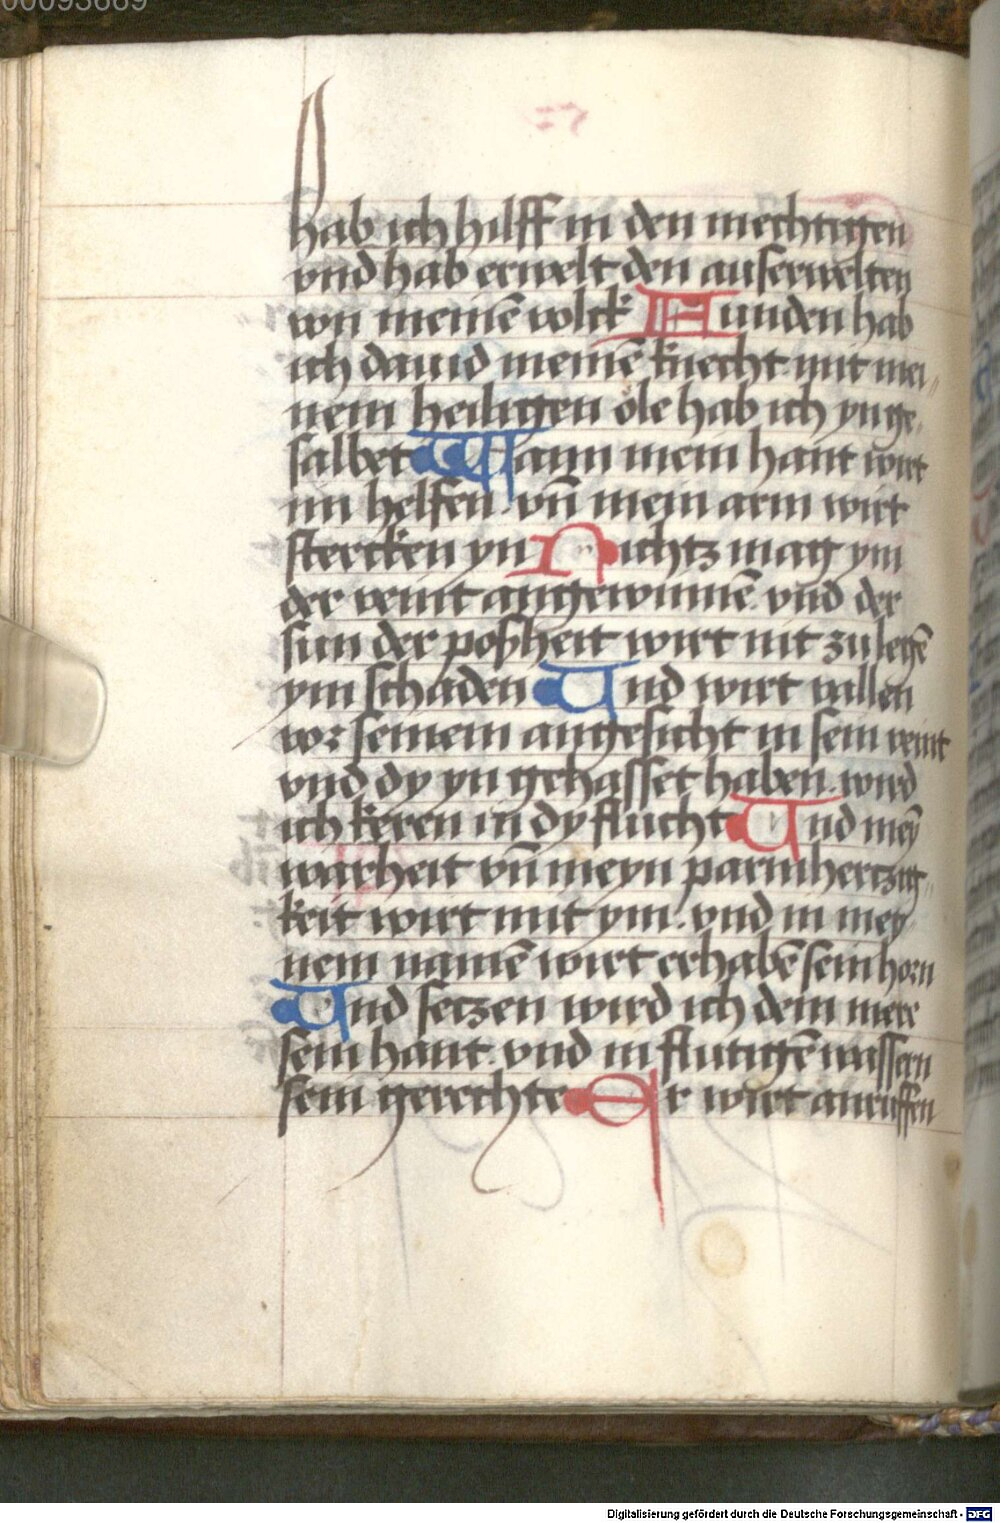 00093669
hab ich hilff in den mechtigen
vnd hab erwelt den auserwelten
von meinē volck Funden hab
ich dauid meinē knecht mit mei„
nem heiligen öle hab ich yn ge„
salbet Wann mein hant wirt
im helfen. vn̄ mein arm wirt
stercken yn Nichtz mag ym
der veint angewinnē. vnd der
sun der poßheit wirt nit zu legē
ym schaden Vnd wirt vallen
vor seinem angesicht in sein veint
vnd dy yn gehasset haben. wird
ich keren in dy flucht Vnd meȳ
warheit vn̄ meyn parmhertzig„
keit wirt mit ym. vnd in mey„
nem namē wirt erhabē sein horn
Vnd setzen wird ich dem mere
sein hant. vnd in flutigē wassern
sein gerechte Er wirt anruffen
Digitalisierung gefördert durch die Deutsche Forschungsgemeinschaft - DFG